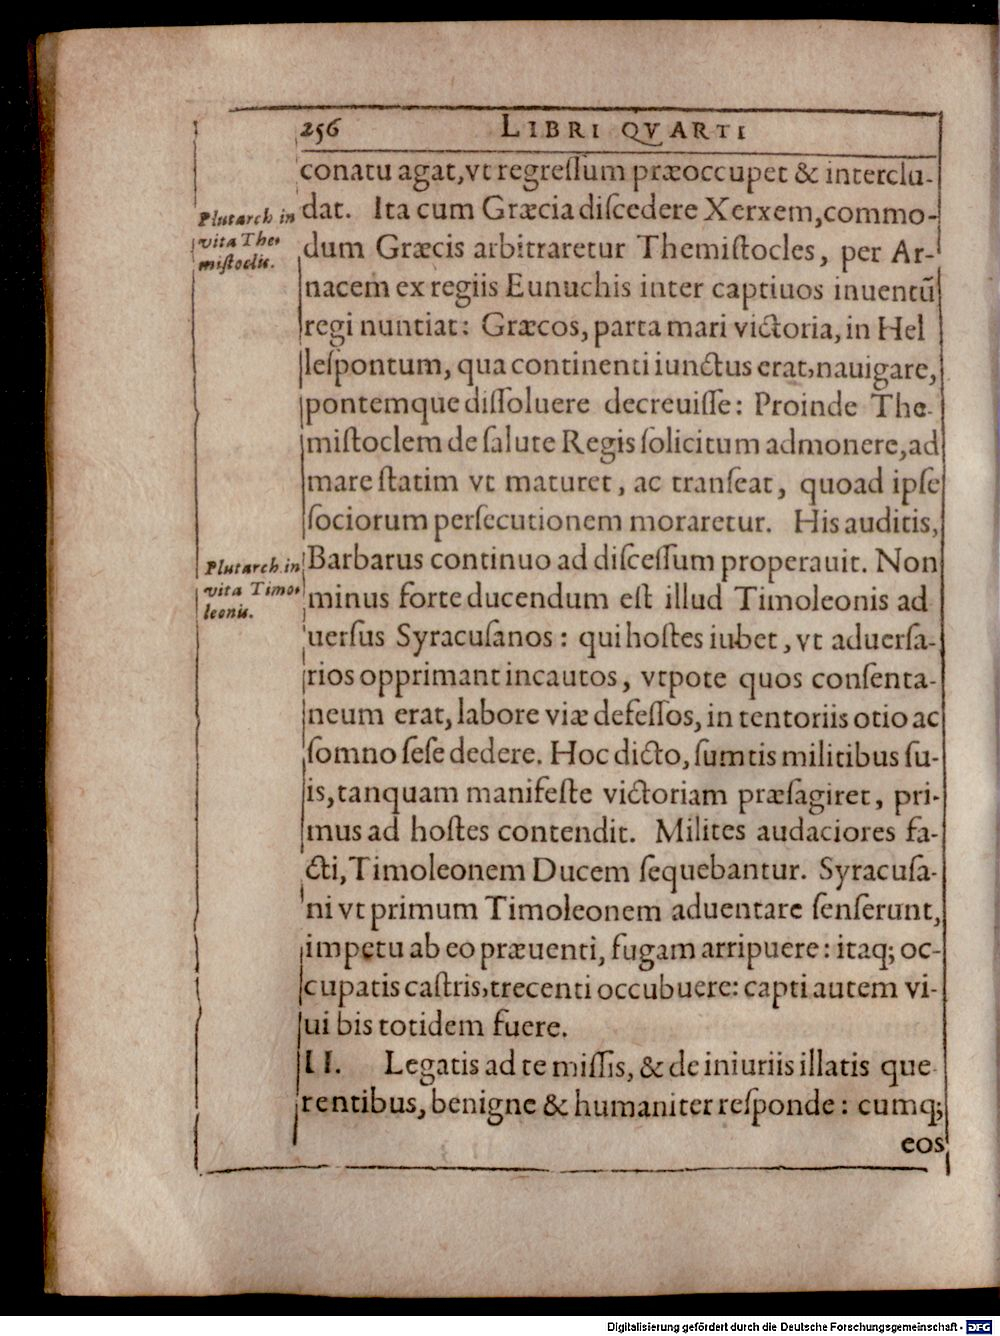 256 LIBRI QVARTI
conatu agat, vt regreſſum præoccupet & interclu-
dat. Ita cum Græcia diſcedere Xerxem, commo-
dum Græcis arbitraretur Themiſtocles, per Ar-
nacem ex regiis Eunuchis inter captiuos inuentũ
regi nuntiat: Græcos, parta mari victoria, in Hel
leſpontum, qua continenti iunctus erat, nauigare,
pontemque diſſoluere decreuiſſe: Proinde The-
miſtoclem de ſalute Regis ſolicitum admonere, ad
mare ſtatim vt maturet, ac tranſeat, quoad ipſe
ſociorum perſecutionem moraretur. His auditis,
Barbarus continuo ad diſceſſum properauit. Non
minus forte ducendum eſt illud Timoleonis ad
uerſus Syracuſanos: qui hoſtes iubet, vt aduerſa-
rios opprimant incautos, vtpote quos conſenta-
neum erat, labore viæ defeſſos, in tentoriis otio ac
ſomno ſeſe dedere. Hoc dicto, ſumtis militibus ſu-
is, tanquam manifeſte victoriam præſagiret, pri-
mus ad hoſtes contendit. Milites audaciores fa-
cti, Timoleonem Ducem ſequebantur. Syracuſa-
ni vt primum Timoleonem aduentare ſenſerunt,
impetu ab eo præuenti, fugam arripuere: itaq; oc-
cupatis caſtris, trecenti occubuere: capti autem vi-
ui bis totidem fuere.
II. Legatis ad te miſſis, & de iniuriis illatis que-
rentibus, benigne & humaniter reſponde: cumq;
eos
Plutarch in
vita The-
miſtoclis.
Plutarch in
vita Timo-
leonis.
Digitalisierung gefördert durch die Deutsche Forschungsgemeinschaft - DFG